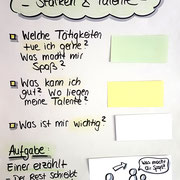 Stärken & Talente
Welche Tätigkeiten
tue ich gerne?
Was macht mir
Spaß?
Was kann ich
gut? Wo liegen
meine Talente?
Was ist mir wichtig?
Aufgabe:
Einer erzählt
- Der Rest schreibt
Was macht
dir Spaß?